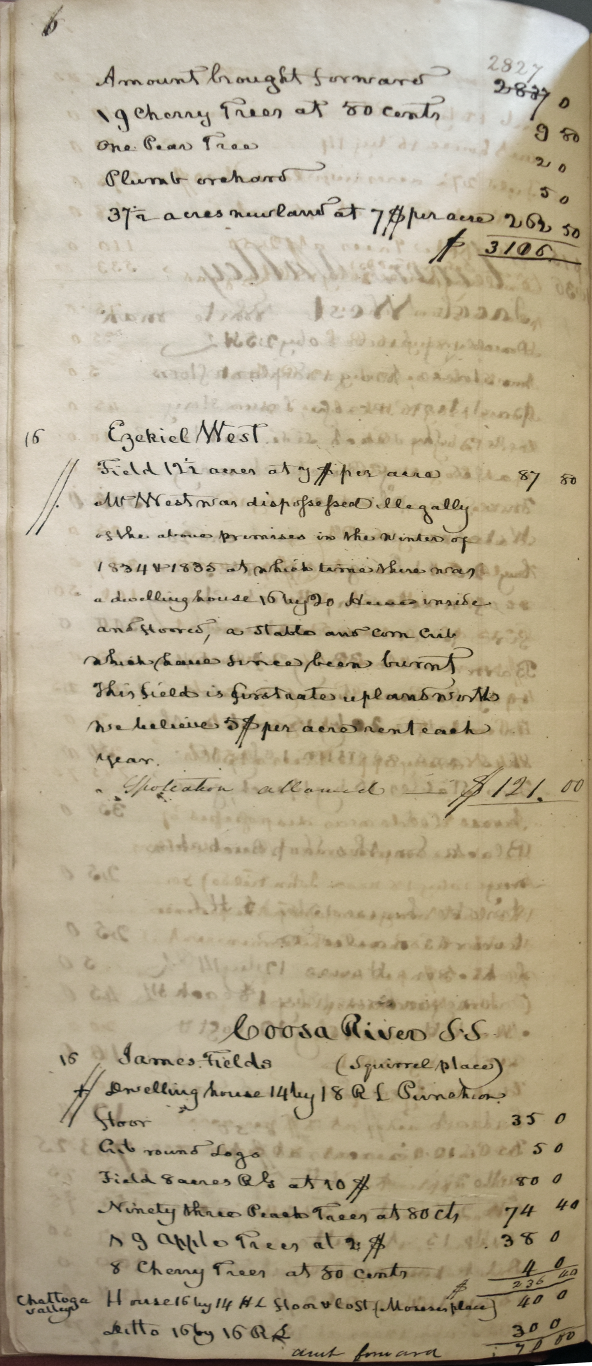 6
2827
Amount brought forward 2837 0
19 Cherry Trees at 50 cents 9 50
One Pear Tree 2 0
Plumb orchard 5 0
37½ acres new land at 7 $ per acre 262 50
$ 3106
16 Ezekiel West
Field 12½ acres at 7 $ per acre 87 50
Mr West was dispossessed illegally
of the above premises in the winter of
1834 & 1835 at which time there was
a dwelling house 16 by 20 Hewn inside
and floored, a Stable and Corn Crib
which have since been burnt
This field is first rate upland worth
we believe 3 $ per acre rent each
year.
Spoliation allowed $ 121. 00
Coosa River S.S
16 James Fields (Squirrel place)
Dwelling house 14 by 18 R L Puncheon
floor 35 0
Crib round Logs 5 0
Field 8 acres R Ls at 10 $ 80 0
Ninety three Peach Trees at 80 cts 74 40
19 Apple Trees at 2 $ 38 0
8 Cherry Trees at 50 cents 4 0
$ 236 40
Chattoga valley House 16 by 14 H L floor & loft (Moreses place) 40 0
Ditto 16 by 16 R L 30 0
amt forward 70 00